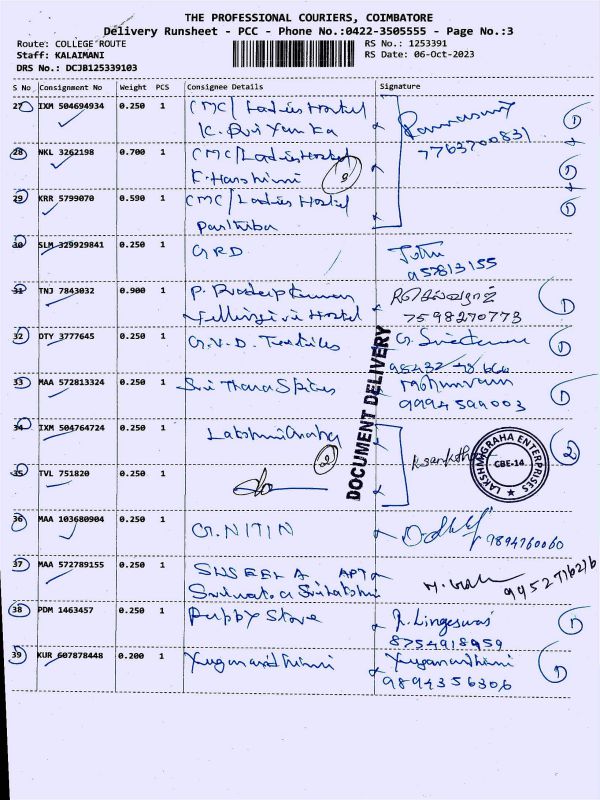 THE PROFESSIONAL COURIERS, COIMBATORE
Delivery Runsheet - PCC - Phone No.:0422-3505555 - Page No.:3
Route: COLLEGE ROUTE
RS No.: 1253391
Staff: KALAIMANI
RS Date: 06-Oct-2023
DRS No.: DCJB125339103
S No Consignment No Weight PCS Consignee Details Signature
27 IXM 504694934 0.250 1 CMC/Ladies Hostel
K. Priyanka
7763700831
28 NKL 3262198 0.700 1 CMC/Ladies Hostel
K. Harshini
29 KRR 5799070 0.590 1 CMC/Ladies Hostel
Parthiba
30 SLM 329929841 0.250 1 GRD
957813155
31 TNJ 7843032 0.900 1 P. Pradeep Kumar
Hostel 7598270773
32 DTY 3777645 0.250 1 G.V.D. Textiles
33 MAA 572813324 0.250 1 Sri Thara Spices
9994599003
34 IXM 504764724 0.250 1 Lakshmi Graha
2
LAKSHMIGRAHA ENTERPRISES
CBE-14.
35 TVL 751820 0.250 1
DOCUMENT DELIVERY
36 MAA 103680904 0.250 1 G. NITIN
9894760060
37 MAA 572789155 0.250 1 SUSEELA APT
9452716216
38 PDM 1463457 0.250 1 Puppy Store R. Lingeswari
8754918959
39 KUR 607878448 0.200 1 Yuganandhini Yuganandhini
9894356306